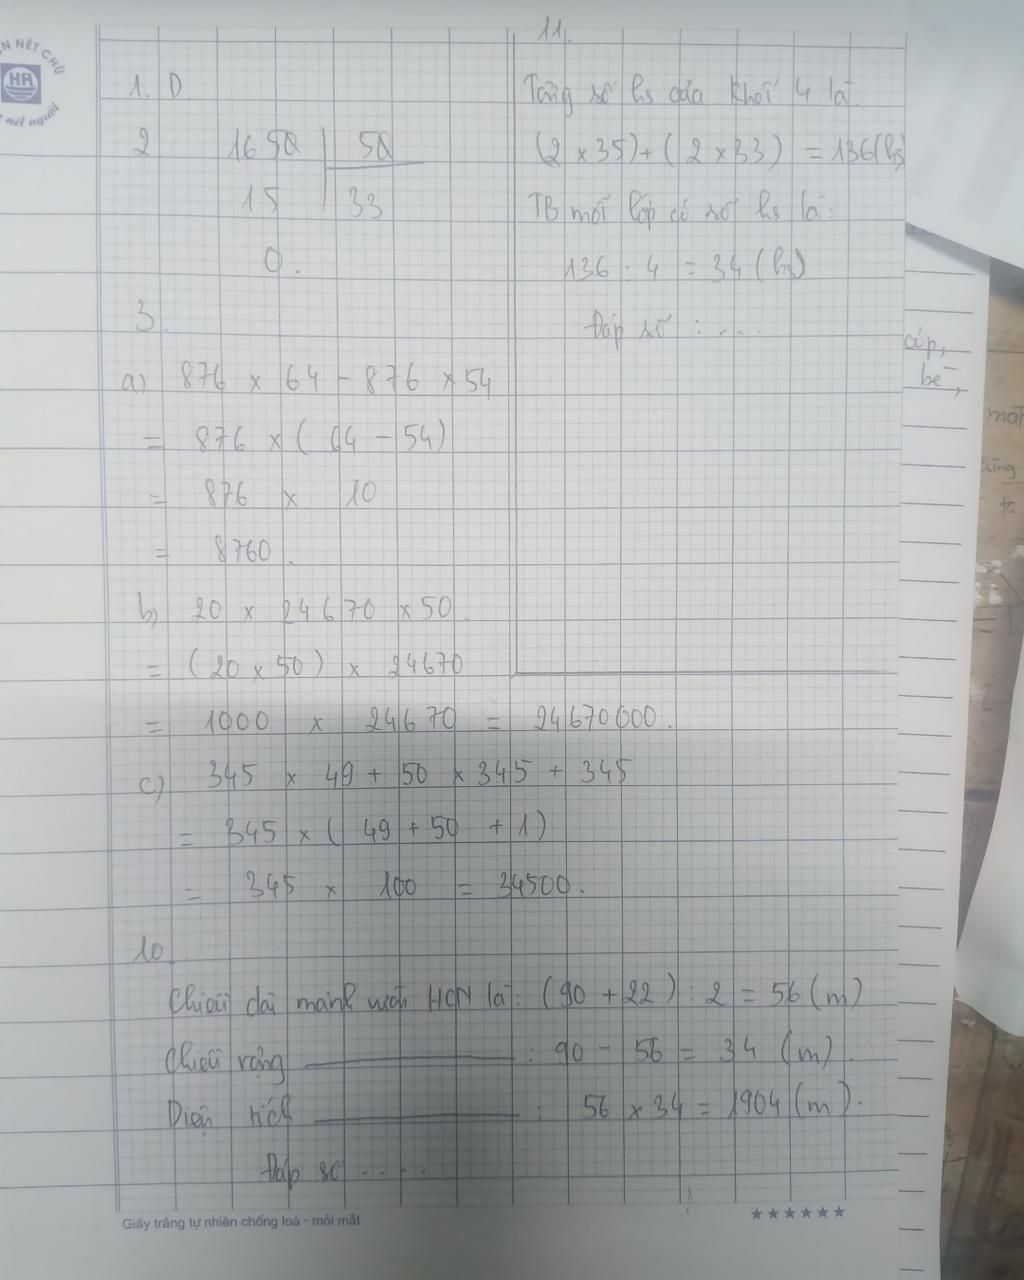 N NẾT CHỮ
HA
nét người
1. D.
2 1650 | 50
15 | 33
0.
3.
a) 876 x 64 - 876 x 54
= 876 x ( 64 - 54)
= 876 x 10
= 8760.
b) 20 x 24670 x 50.
= (20 x 50) x 24670
= 1000 x 24670 = 24670000.
c) 345 x 49 + 50 x 345 + 345
= 345 x ( 49 + 50 + 1)
= 345 x 100 = 34500.
10
Chiều dài mảnh vườn HCN là: (90 + 22) : 2 = 56 (m)
Chiều rộng : 90 - 56 = 34 (m).
Diện tích : 56 x 34 = 1904 (m).
Đáp số ....
11.
Tổng số hs của khối 4 là:
(2 x 35) + ( 2 x 33) = 136(hs)
TB mỗi lớp có số hs là:
136 : 4 = 34 (hs)
Đáp số : ....
cáp,
bè,
mát
cũng
ta
Giấy trắng tự nhiên chống loá - mỏi mắt
★★★★★★